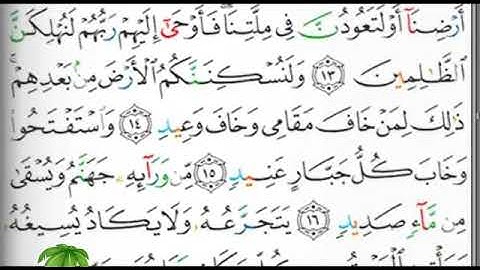 أَرْضِنَآ أَوْ لَتَعُودُنَّ فِى مِلَّتِنَا ۖ فَأَوْحَىٰٓ إِلَيْهِمْ رَبُّهُمْ لَنُهْلِكَنَّ
ٱلظَّـٰلِمِينَ ١٣ وَلَنُسْكِنَنَّكُمُ ٱلْأَرْضَ مِنۢ بَعْدِهِمْ ۚ
ذَٰلِكَ لِمَنْ خَافَ مَقَامِى وَخَافَ وَعِيدِ ١٤ وَٱسْتَفْتَحُوا۟
وَخَابَ كُلُّ جَبَّارٍ عَنِيدٍ ١٥ مِّن وَرَآئِهِۦ جَهَنَّمُ وَيُسْقَىٰ
مِن مَّآءٍ صَدِيدٍ ١٦ يَتَجَرَّعُهُۥ وَلَا يَكَادُ يُسِيغُهُۥ